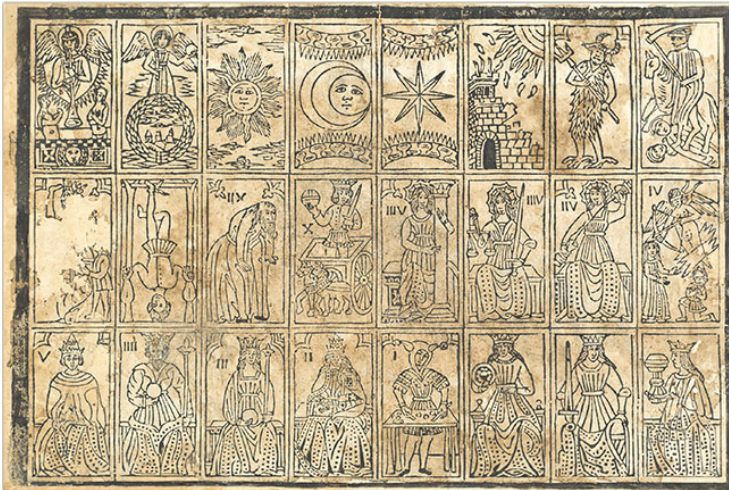 IIX X IIIV IIIV IIV IV
V IIII III II I